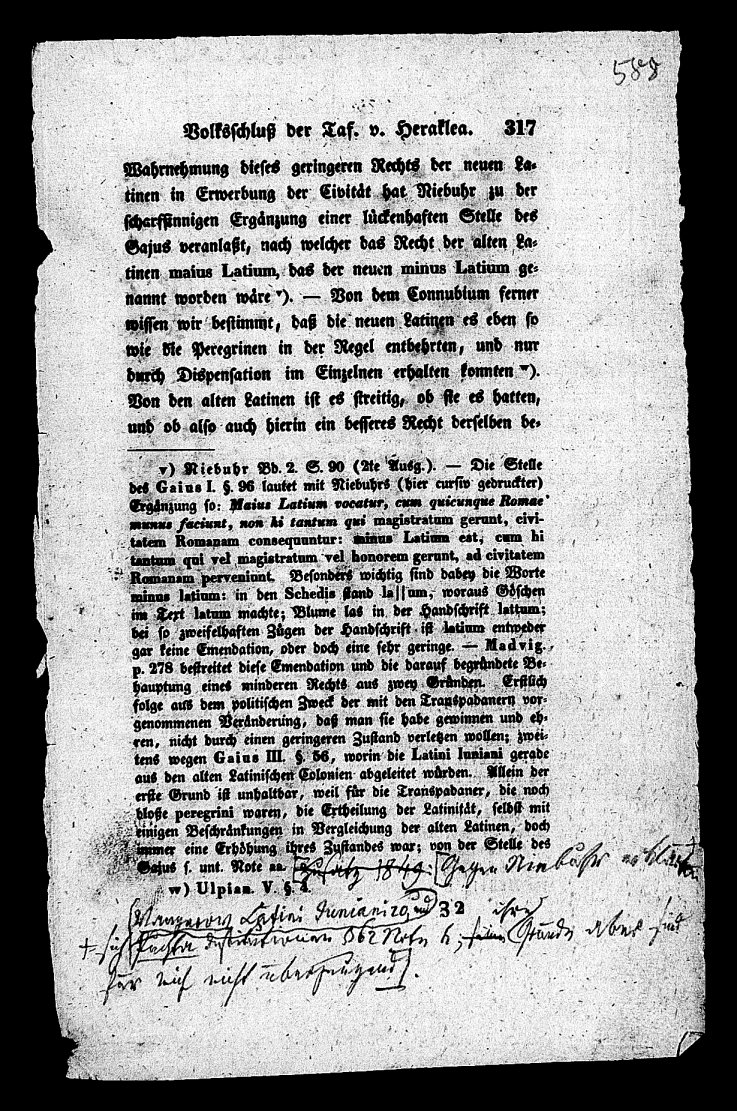 588
Volksschluß der Taf. v. Heraklea. 317
Wahrnehmung dieses geringeren Rechts der neuen La-
tinen in Erwerbung der Civität hat Niebuhr zu der
scharfsinnigen Ergänzung einer lückenhaften Stelle des
Gajus veranlaßt, nach welcher das Recht der alten La-
tinen maius Latium, das der neuen minus Latium ge-
nannt worden wäre ᵛ). — Von dem Connubium ferner
wissen wir bestimmt, daß die neuen Latinen es eben so
wie die Peregrinen in der Regel entbehrten, und nur
durch Dispensation im Einzelnen erhalten konnten ʷ).
Von den alten Latinen ist es streitig, ob sie es hatten,
und ob also auch hierin ein besseres Recht derselben be-
v) Niebuhr Bd. 2. S. 90 (2te Ausg.). — Die Stelle
des Gaius I. §. 96 lautet mit Niebuhrs (hier cursiv gedruckter)
Ergänzung so: Maius Latium vocatur, cum quicunque Romae
munus faciunt, non hi tantum qui magistratum gerunt, civi-
tatem Romanam consequuntur: minus Latium est, cum hi
tantum qui vel magistratum vel honorem gerunt, ad civitatem
Romanam perveniunt. Besonders wichtig sind dabey die Worte
minus latium: in den Schedis stand la||um, woraus Göschen
im Text latum machte; Blume las in der Handschrift lattum;
bei so zweifelhaften Zügen der Handschrift ist latium entweder
gar keine Emendation, oder doch eine sehr geringe. — Madvig.
p. 278 bestreitet diese Emendation und die darauf begründete Be-
hauptung eines minderen Rechts aus zwey Gründen. Erstlich
folge aus dem politischen Zweck der mit den Transpadanern vor-
genommenen Veränderung, daß man sie habe gewinnen und eh-
ren, nicht durch einen geringeren Zustand verletzen wollen; zwei-
tens wegen Gaius III. §. 56, worin die Latini Iuniani gerade
aus den alten Latinischen Colonien abgeleitet würden. Allein der
erste Grund ist unhaltbar, weil für die Transpadaner, die noch
bloße peregrini waren, die Ertheilung der Latinität, selbst mit
einigen Beschränkungen in Vergleichung der alten Latinen, doch
immer eine Erhöhung ihres Zustandes war; von der Stelle des
Gajus s. unt. Note aa. [Zusatz 1849. [Gegen Niebuhr erklären
w) Ulpian. V. §. 4.
Vangerow Latini Iuniani 20, und 32 ihre
+ sich Puchta Institutionen §62 Note b; Gründe aber sind
für mich nicht überzeugend].